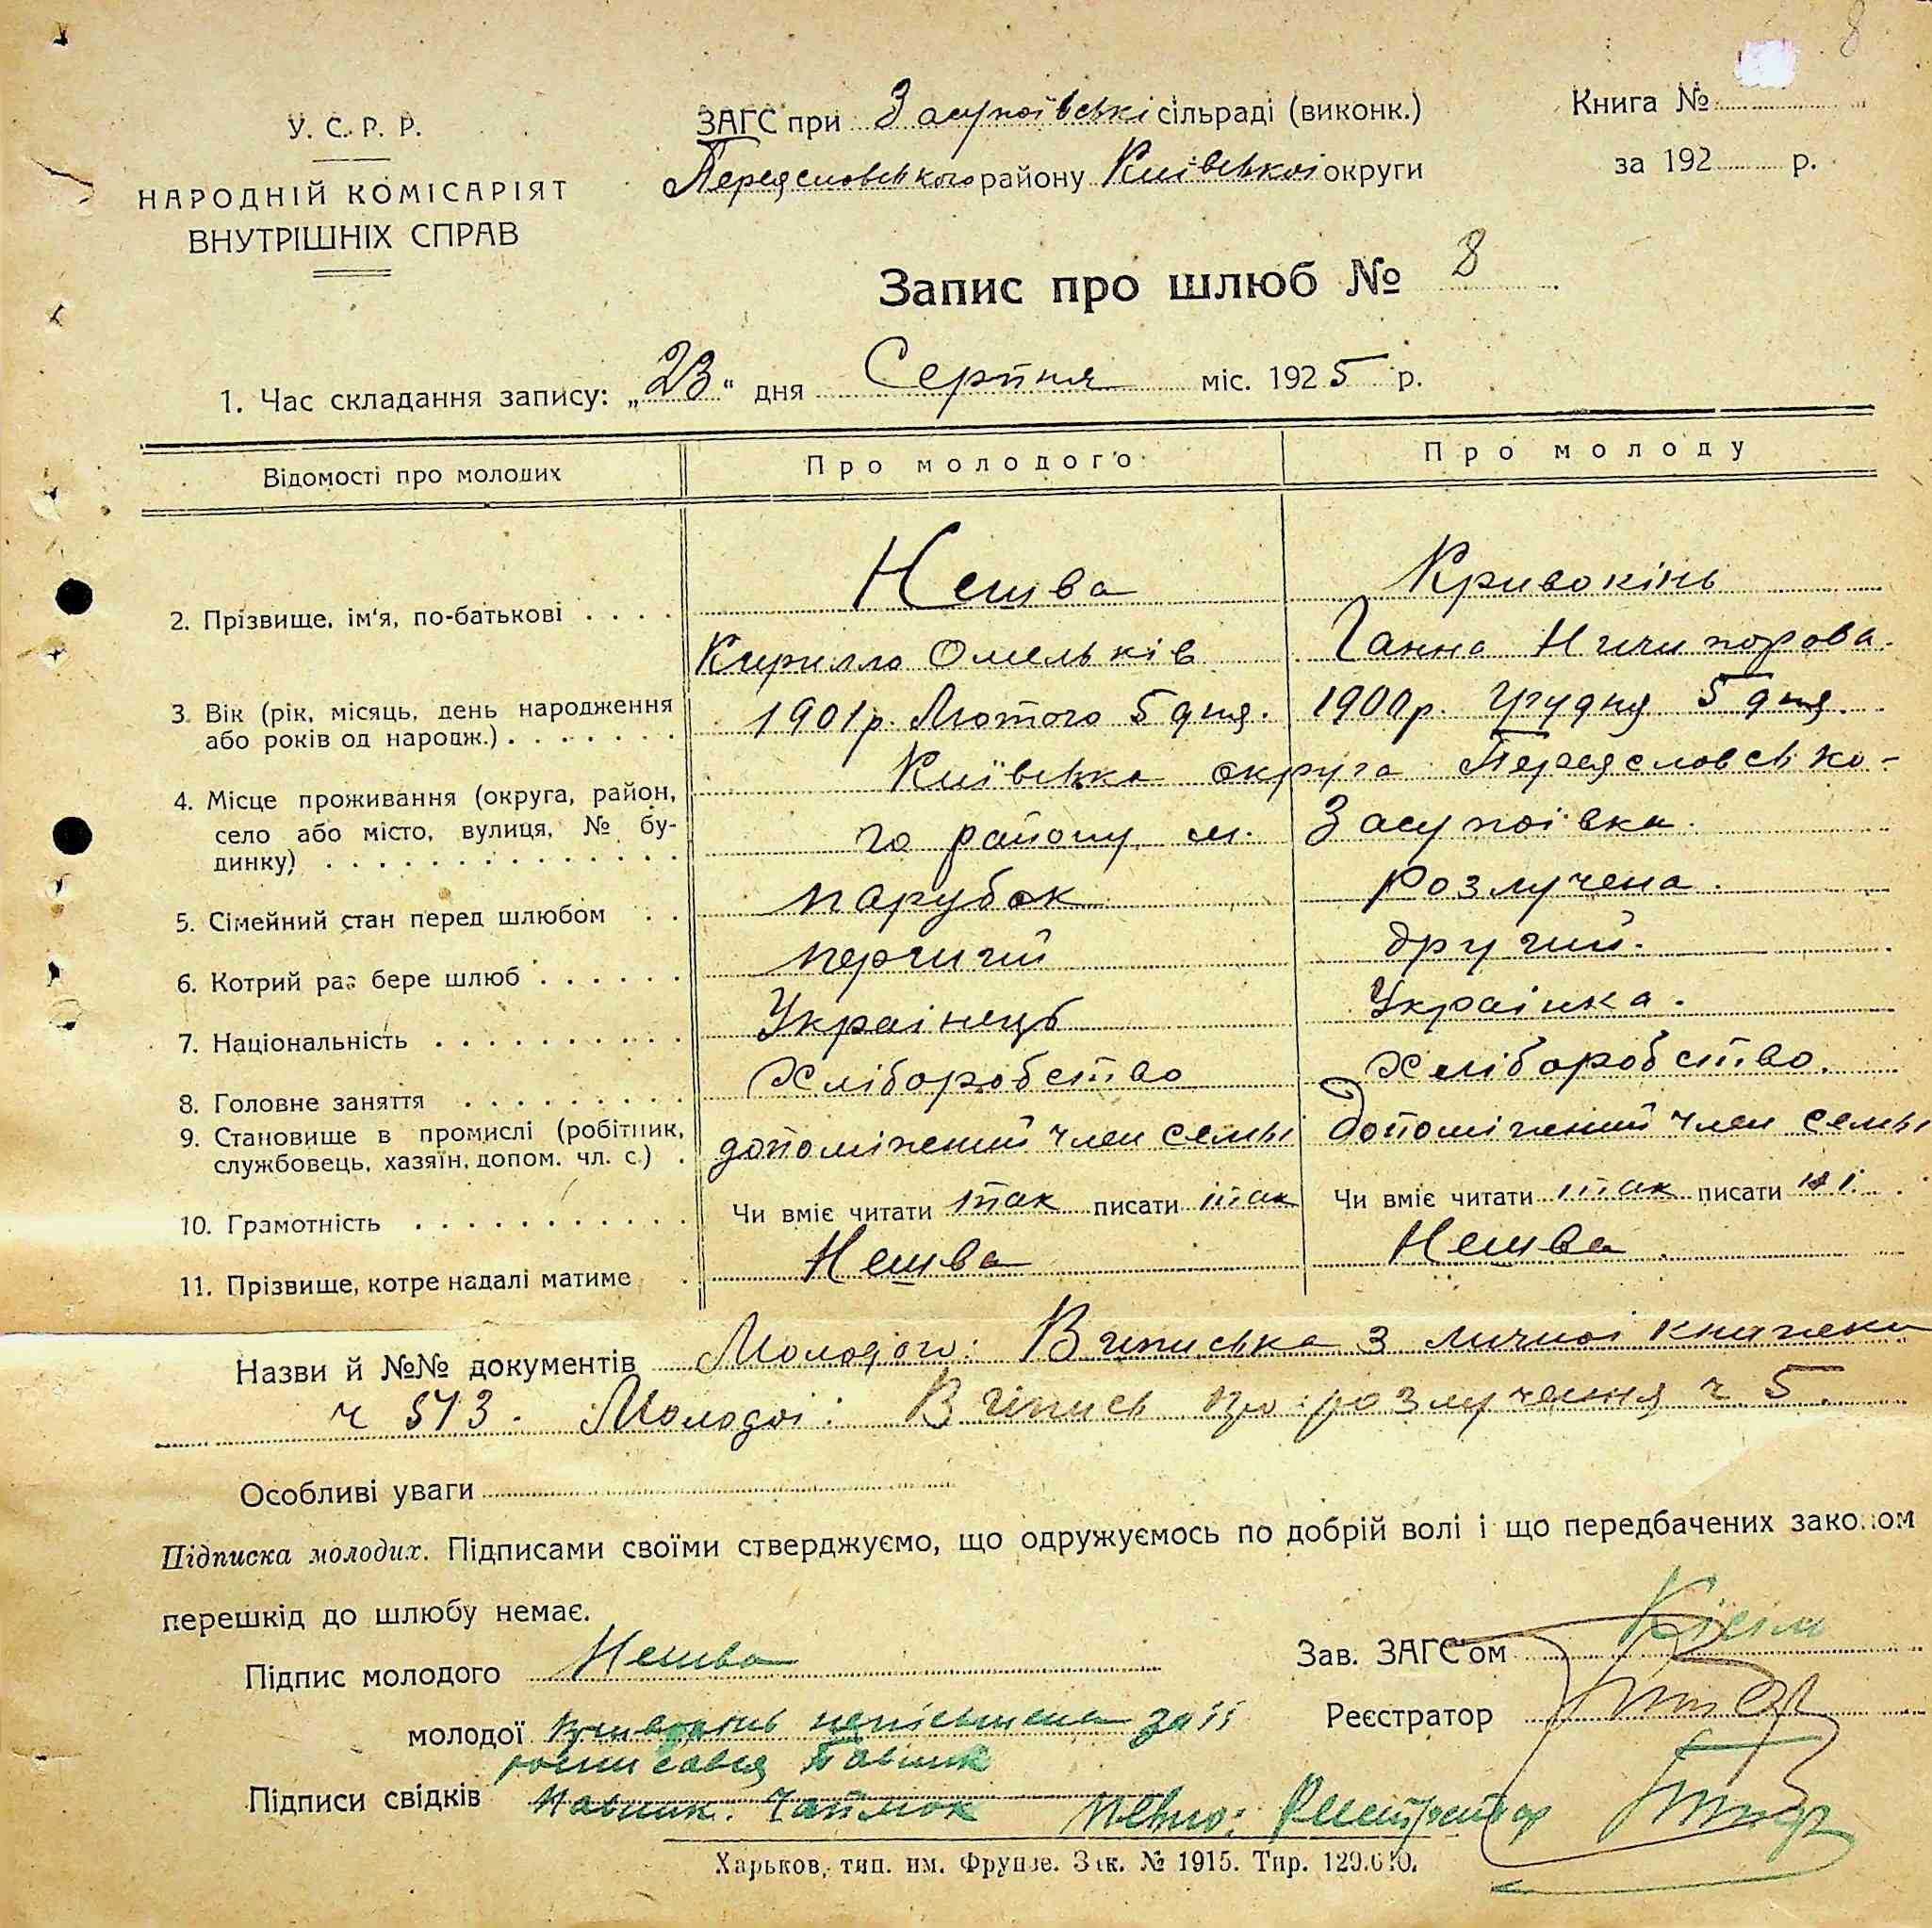 8
У. С. Р. Р.
НАРОДНІЙ КОМІСАРІЯТ
ВНУТРІШНІХ СПРАВ
ЗАГС при Засупоївські сільраді (виконк.)
Переяславського району Київської округи
Книга №
за 192 р.
Запис про шлюб № 8
1. Час складання запису: „23“ дня Серпня міс. 1925 р.
Відомості про молодих Про молодого Про молоду
2. Прізвище, ім'я, по-батькові Нешва Кривокінь
Кирилло Омельків Ганна Ничипорова.
3. Вік (рік, місяць, день народження або років од народж.) 1901 р. Лютого 5 дня. 1900 р. Грудня 5 дня.
4. Місце проживання (округа, район, село або місто, вулиця, № будинку) Київська округа Переяславсько-
го району м. Засупоівка.
5. Сімейний стан перед шлюбом парубок розлучена.
6. Котрий раз бере шлюб перший другий.
7. Національність Украінець Украінка.
8. Головне заняття Хліборобство Хліборобство.
9. Становище в промислі (робітник, службовець, хазяїн, допом. чл. с.) допоміжний член семьі допоміжний член семьі
10. Грамотність Чи вміє читати так писати так Чи вміє читати так писати ні.
11. Прізвище, котре надалі матиме Нешва Нешва
Назви й №№ документів Молодого: Виписька з личноі книжки
ч 573. Молодоі: Випись про розлучення ч 5.
Особливі уваги
Підписка молодих. Підписами своїми стверджуємо, що одружуємось по добрій волі і що передбачених законом
перешкід до шлюбу немає.
Підпис молодого Нешва
Зав. ЗАГС'ом
молодої Кривокінь неписьмена за іі
Реєстратор
росписався Павлик
Підписи свідків Павлик. Чаймок
Харьков, тип. им. Фрунзе. Зак. № 1915. Тир. 120.000.